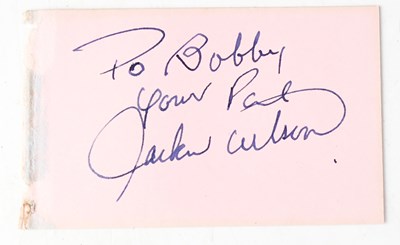 To Bobby
Your Pal
Jackie Wilson